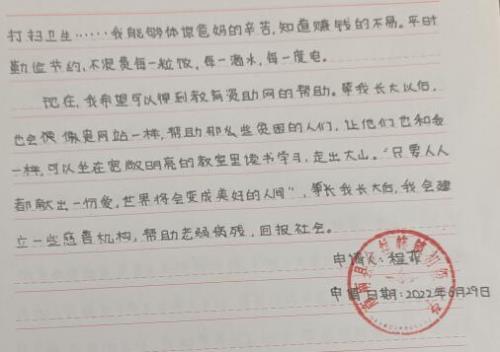 打扫卫生……我能够体谅爸妈的辛苦,知道赚钱的不易。平时
勤俭节约,不浪费每一粒饭,每一滴水,每一度电。
现在,我希望可以得到教育资助网的帮助。等我长大以后,
也会像贵网站一样,帮助那么些贫困的人们,让他们也和我
一样,可以坐在宽敞明亮的教室里读书学习,走出大山。“只要人人
都献出一份爱,世界将会变成美好的人间”,等长我长大后,我会建
立一些慈善机构,帮助老弱病残,回报社会。
申请人:程
申请日期:2022年6月29日